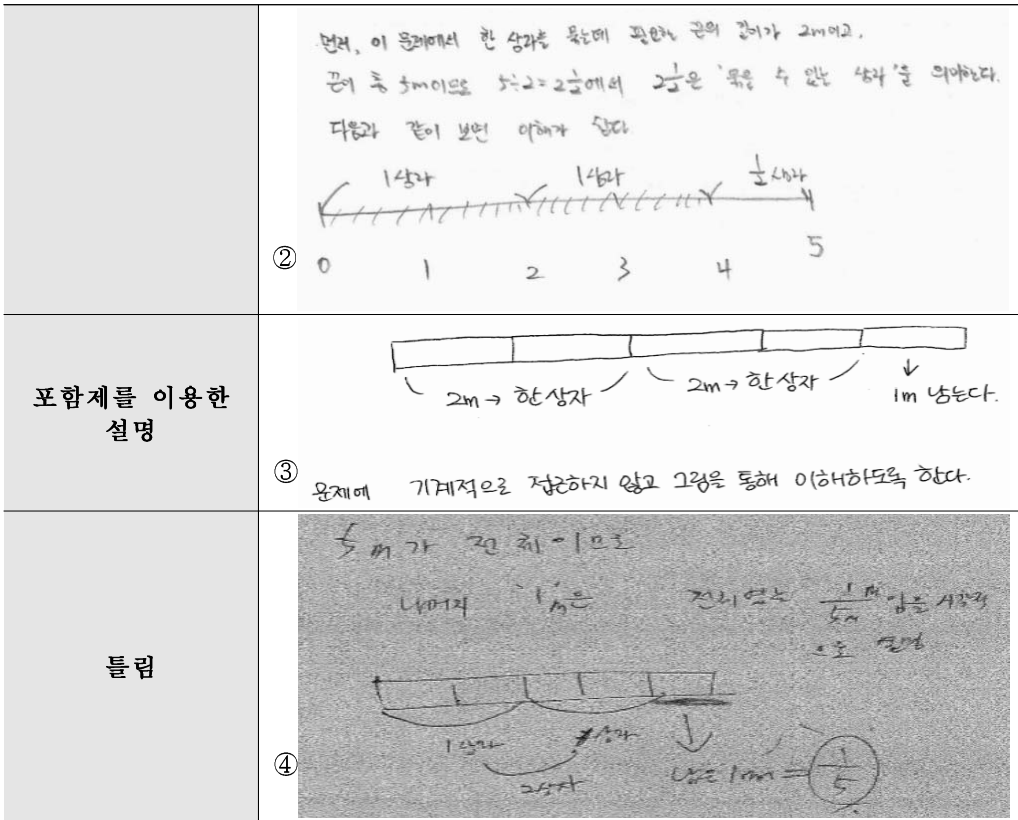 먼저, 이 문제에서 한 상자를 묶는데 필요한 끈의 길이가 2m이고,
끈이 총 5m이므로 5÷2=2½에서 2½은 '묶을 수 있는 상자'을 의미한다.
다음과 같이 보면 이해가 쉽다
1상자 1상자 ½상자
② 0 1 2 3 4 5
포함제를 이용한
설명
2m → 한 상자 2m → 한 상자 1m 남는다.
③ 문제에 기계적으로 접근하지 않고 그림을 통해 이해하도록 한다.
틀림
5m가 전체이므로
나머지 1m는 1m/5m 임을 시각적
으로 설명
1상자 상자
2상자
④ 남은 1m = 1/5